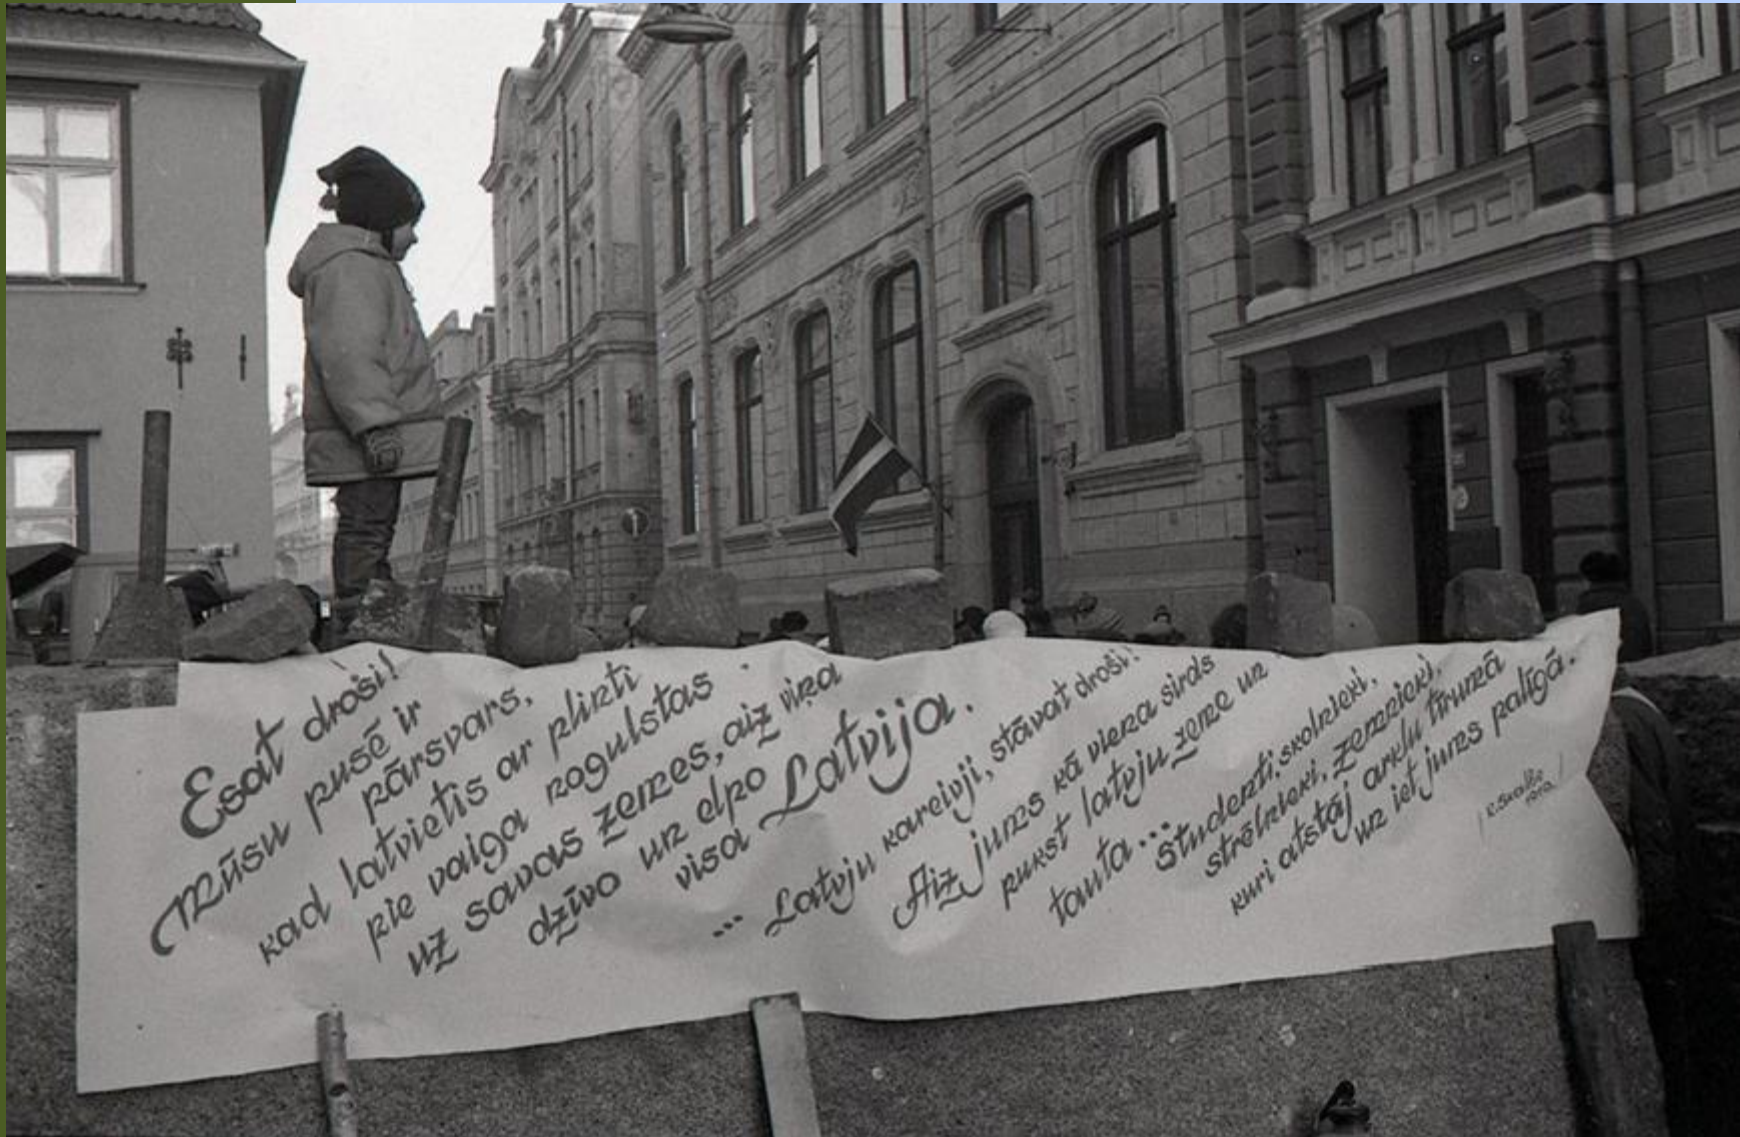 Esat droši!
Mūsu pusē ir
pārsvars,
kad latvietis ar plinti
pie vaiga nogulstas
uz savas zemes, aiz viņa
dzīvo un elpo
visa Latvija.
... Latvju kareivji, stāvat droši!
Aiz jums kā viena sirds
pukst latvju zeme un
tauta... Studenti, skolnieki,
strēlnieki, zemnieki,
kuri atstāj arklu tīrumā
un iet jums palīgā.
/ K. Skalbe /